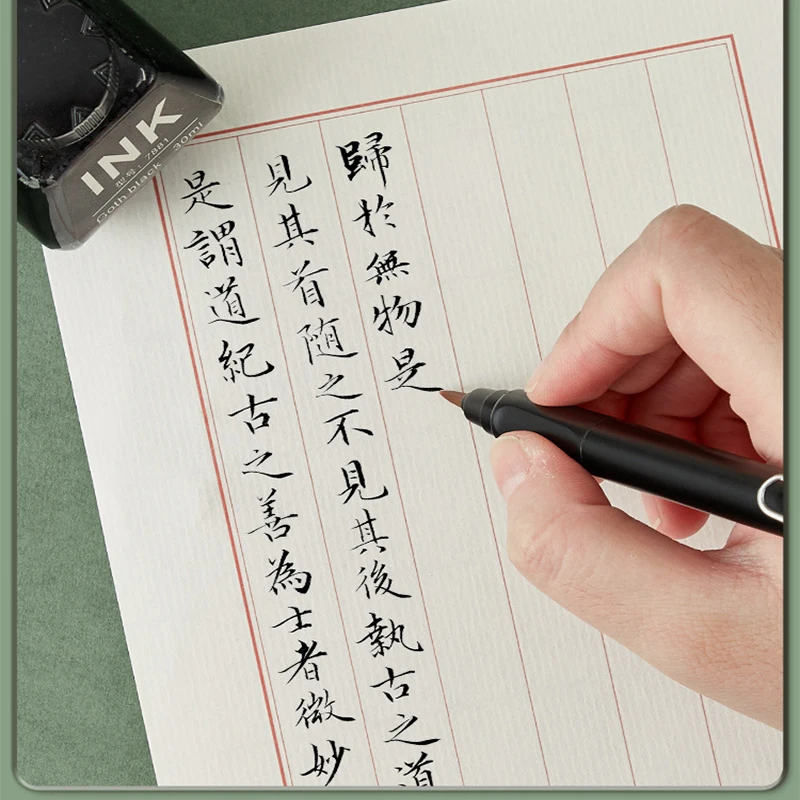 歸於無物是
見其首随之不見其後執古之道
是謂道紀古之善為士者微妙
INK
型号：7881
Goth black 30ml